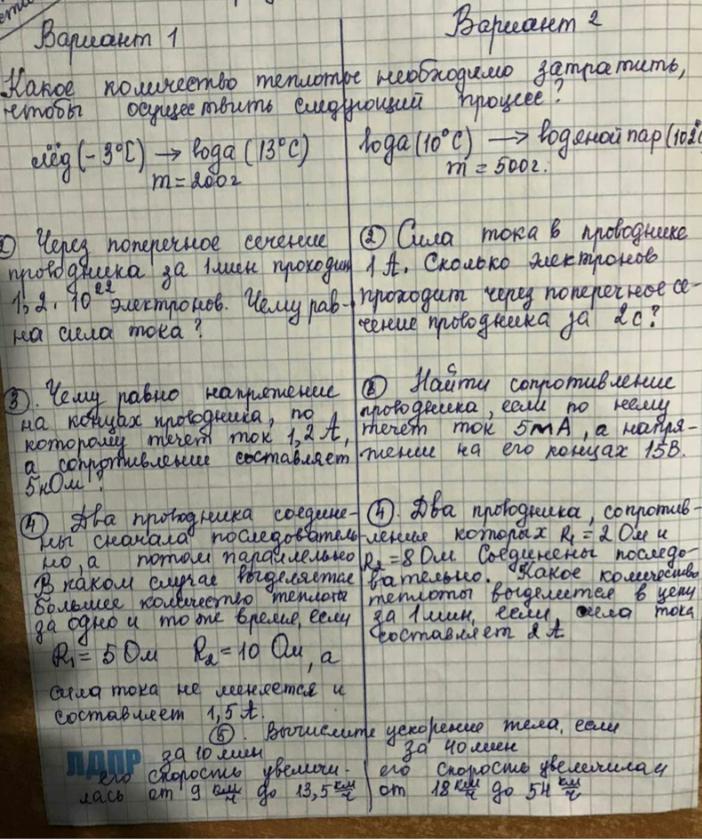 Вариант 1
Вариант 2
Какое количество теплоты необходимо затратить,
чтобы осуществить следующий процесс?
лёд (-3°С) → вода (13°С)
m = 200г
вода (10°С) → водяной пар (102°
m = 500г.
Через поперечное сечение
проводника за 1мин проходит
1,2 · 10²² электронов. Чему рав-
на сила тока?
② Сила тока в проводнике
1 А. Сколько электронов
проходит через поперечное се-
чение проводника за 2с?
③. Чему равно напряжение
на концах проводника, по
которому течет ток 1,2 А,
а сопротивление составляет
5кОм?
Найти сопротивление
проводника, если по нему
течет ток 5mA, а напря-
жение на его концах 15В.
④ Два проводника соедине-
ны сначала последователь-
но, а потом параллельно
В каком случае выделяется
большее количество теплоты
за одно и то же время, если
R₁ = 5 Ом R₂ = 10 Ом, а
сила тока не меняется и
составляет 1,5 А.
④. Два проводника, сопротив-
ление которых R₁ = 2 Ом и
R₂ = 8 Ом Соединены последо-
вательно. Какое количество
теплоты выделится в цепи
за 1мин, если сила тока
составляет 2 А
⑤. Вычислите ускорение тела, если
за 10 мин
его скорость увеличи-
лась от 9 км/ч до 13,5 км/ч
за 40 мин
его скорость увеличилась
от 18 км/ч до 54 км/ч
ЛДПР